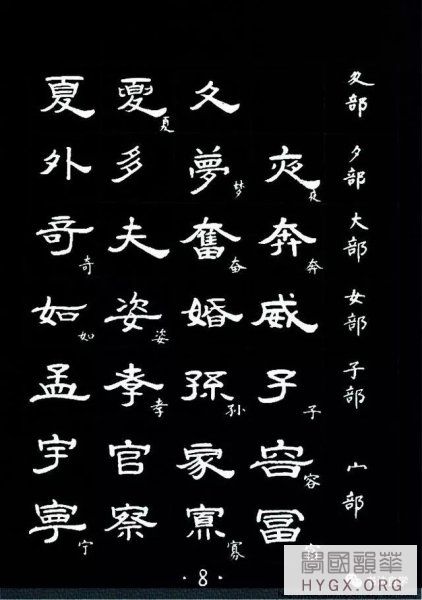 夂部 夂 夏 夏 夏
夕部 夜 夜 夢 梦 多 外
大部 奔 奔 奮 奋 夫 奇 奇
女部 威 婚 姿 姿 如 如
子部 子 子 孫 孙 孝 孝 孟
宀部 容 容 家 官 宇
冨 寡 寡 察 寧 宁
·8·
華韻國學
HYGX.ORG